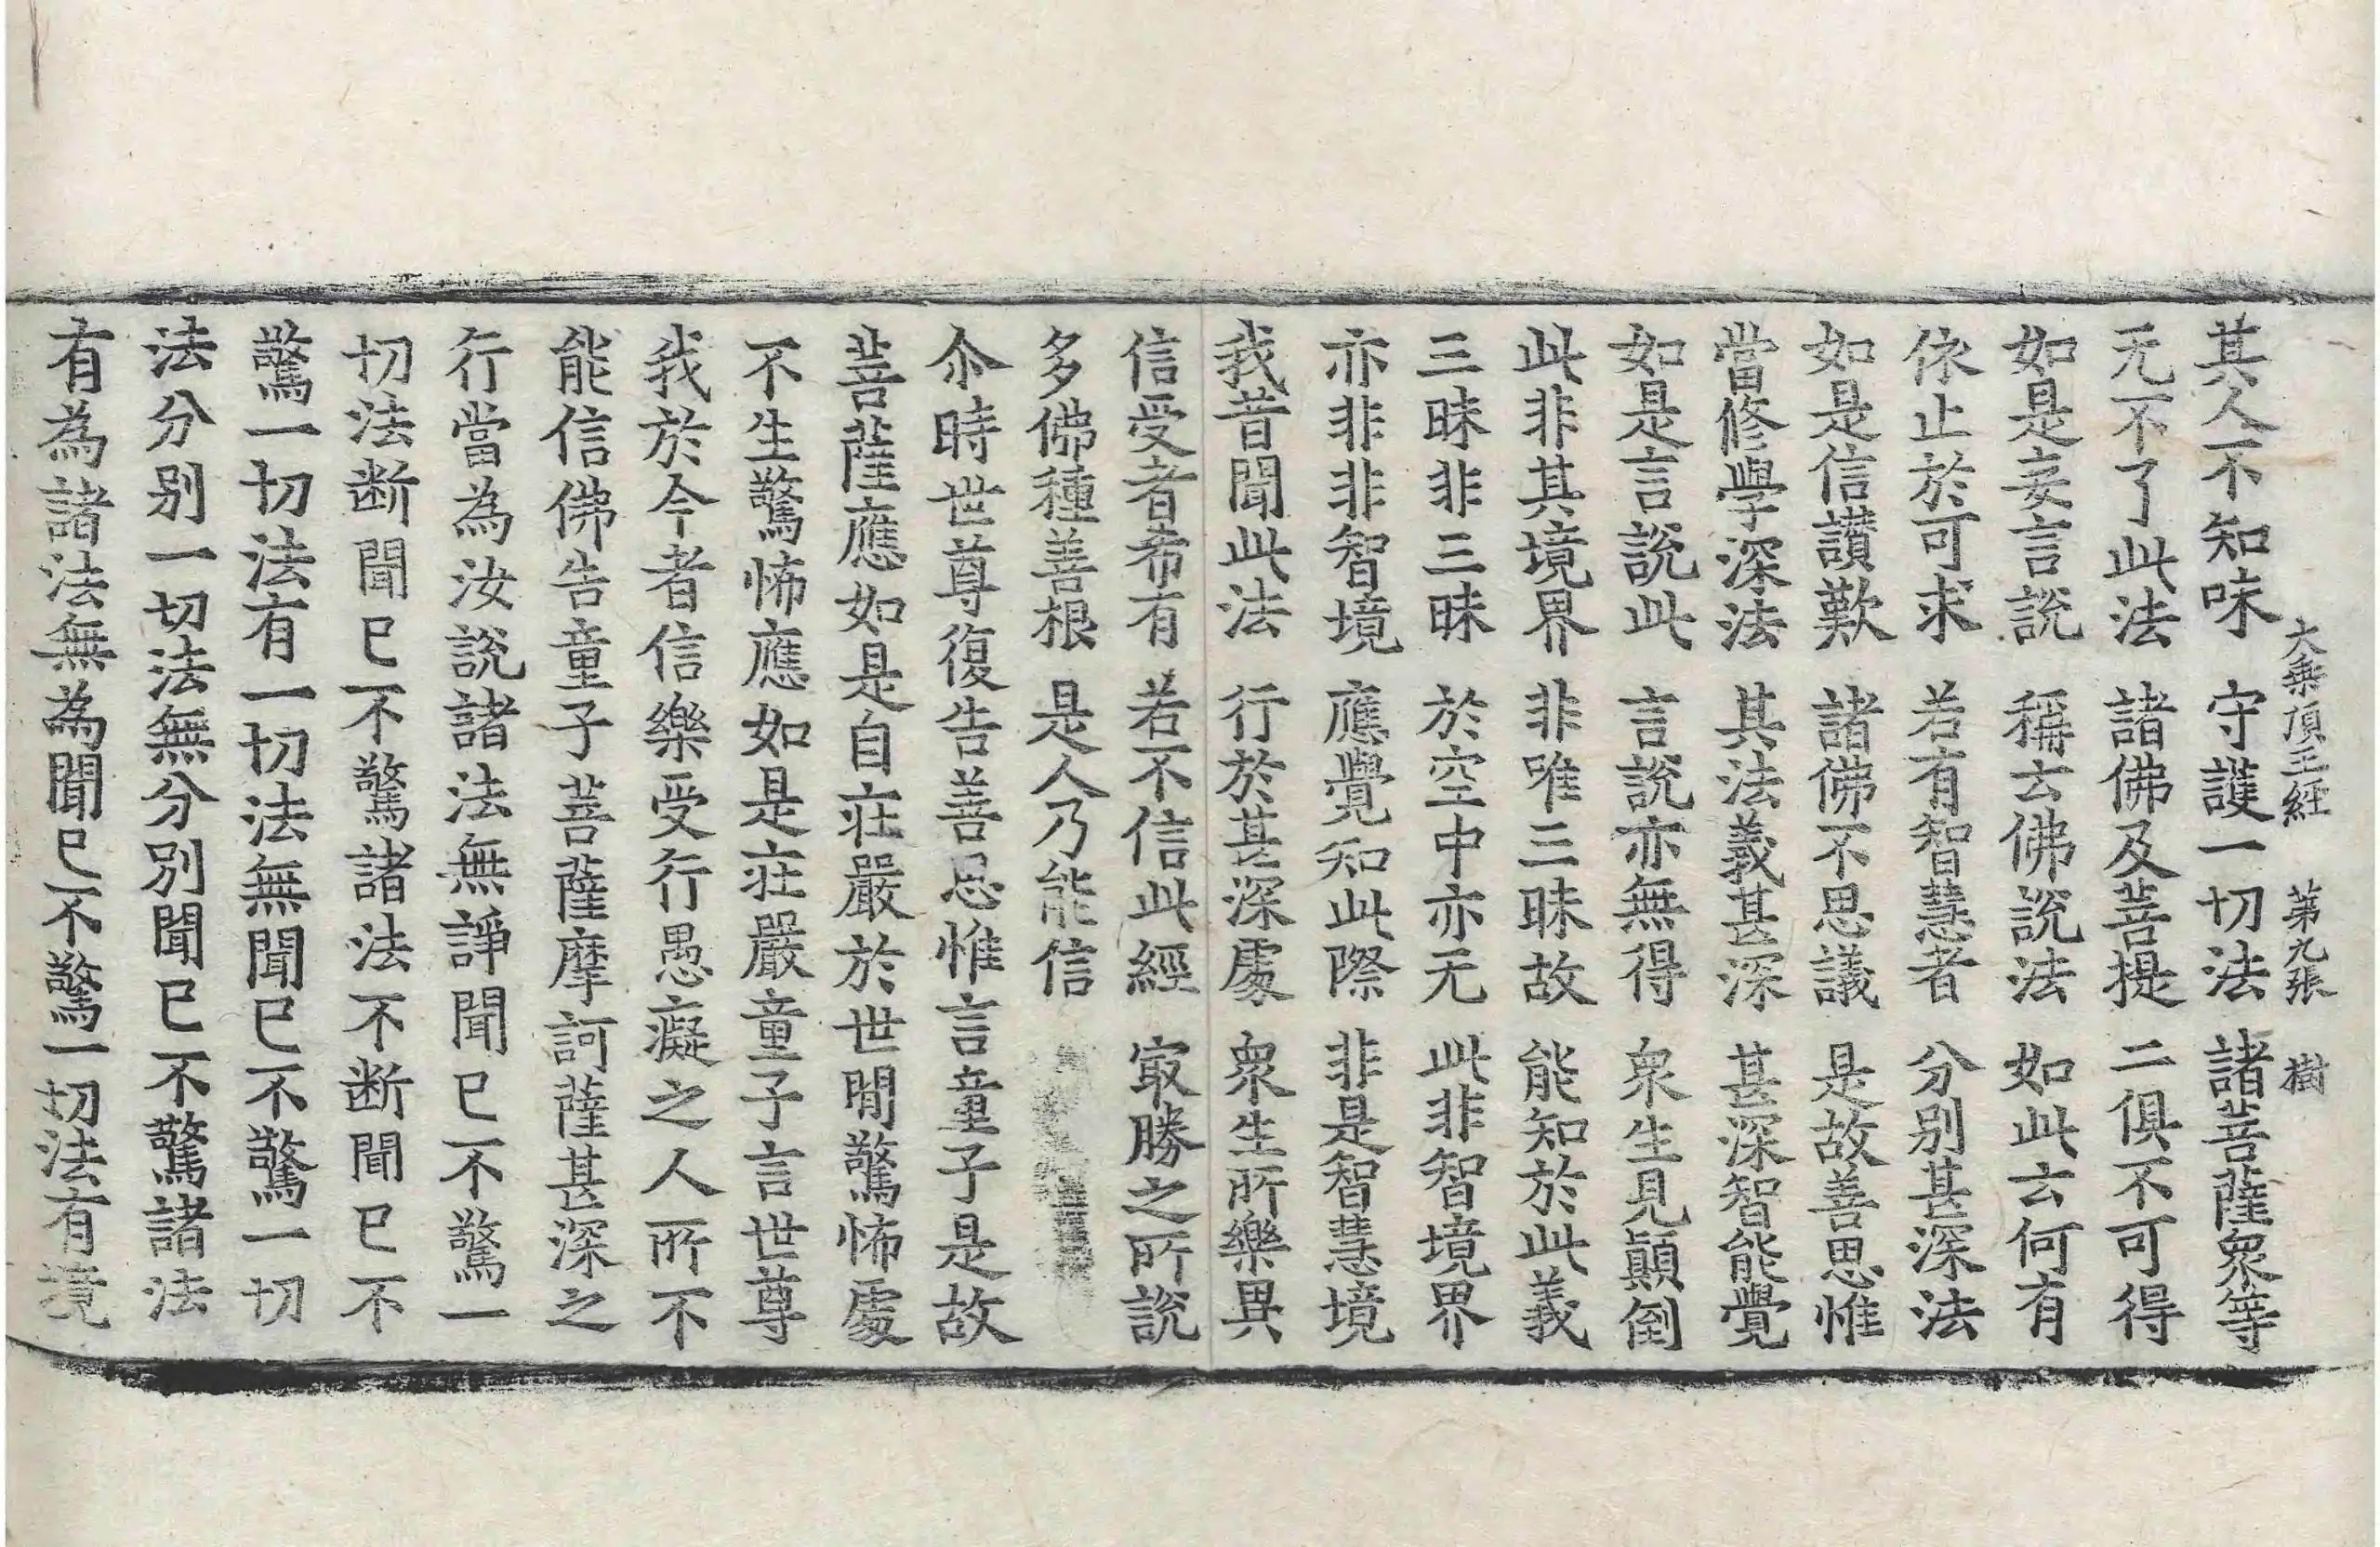 大乗頂王經 第九張 樹
其人不知味 守護一切法 諸菩薩衆等
无不了此法 諸佛及菩提 二俱不可得
如是妄言說 稱云佛說法 如此云何有
依止於可求 若有智慧者 分別甚深法
如是信讃歎 諸佛不思議 是故善思惟
當修學深法 其法義甚深 甚深智能覺
如是言說此 言說亦無得 衆生見顚倒
此非其境界 非唯三昧故 能知於此義
三昧非三昧 於空中亦无 此非智境界
亦非非智境 應覺知此際 非是智慧境
我昔聞此法 行於甚深處 衆生所樂異
信受者希有 若不信此經 㝡勝之所說
多佛種善根 是人乃能信
尒時世尊復告善思惟言童子是故
菩薩應如是自莊嚴於世間驚怖處
不生驚怖應如是莊嚴童子言世尊
我於今者信樂受行愚癡之人所不
能信佛告童子菩薩摩訶薩甚深之
行當為汝說諸法無諍聞已不驚一
切法断聞已不驚諸法不断聞已不
驚一切法有一切法無聞已不驚一切
法分别一切法無分別聞已不驚諸法
有為諸法無為聞已不驚一切法有境